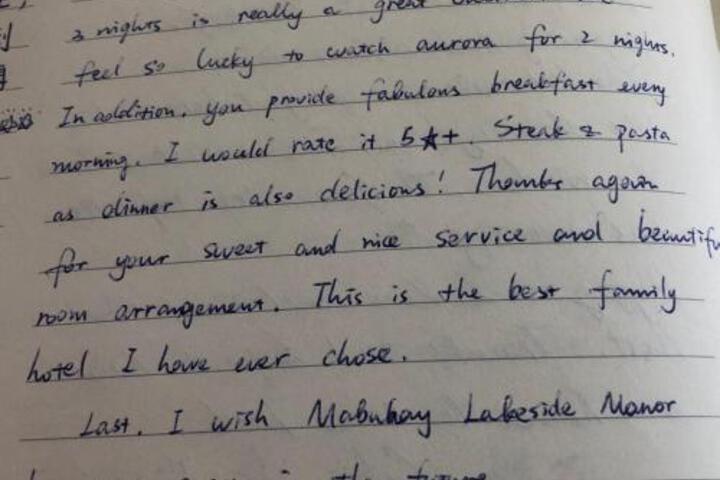 3 nights is really a great
feel so lucky to watch aurora for 2 nights.
In addition, you provide fabulous breakfast every
morning. I would rate it 5★+. Steak & pasta
as dinner is also delicious! Thanks again
for your sweet and nice service and beautifu
room arrangement. This is the best family
hotel I have ever chose.
Last, I wish Mabuhay Lakeside Manor
in the future